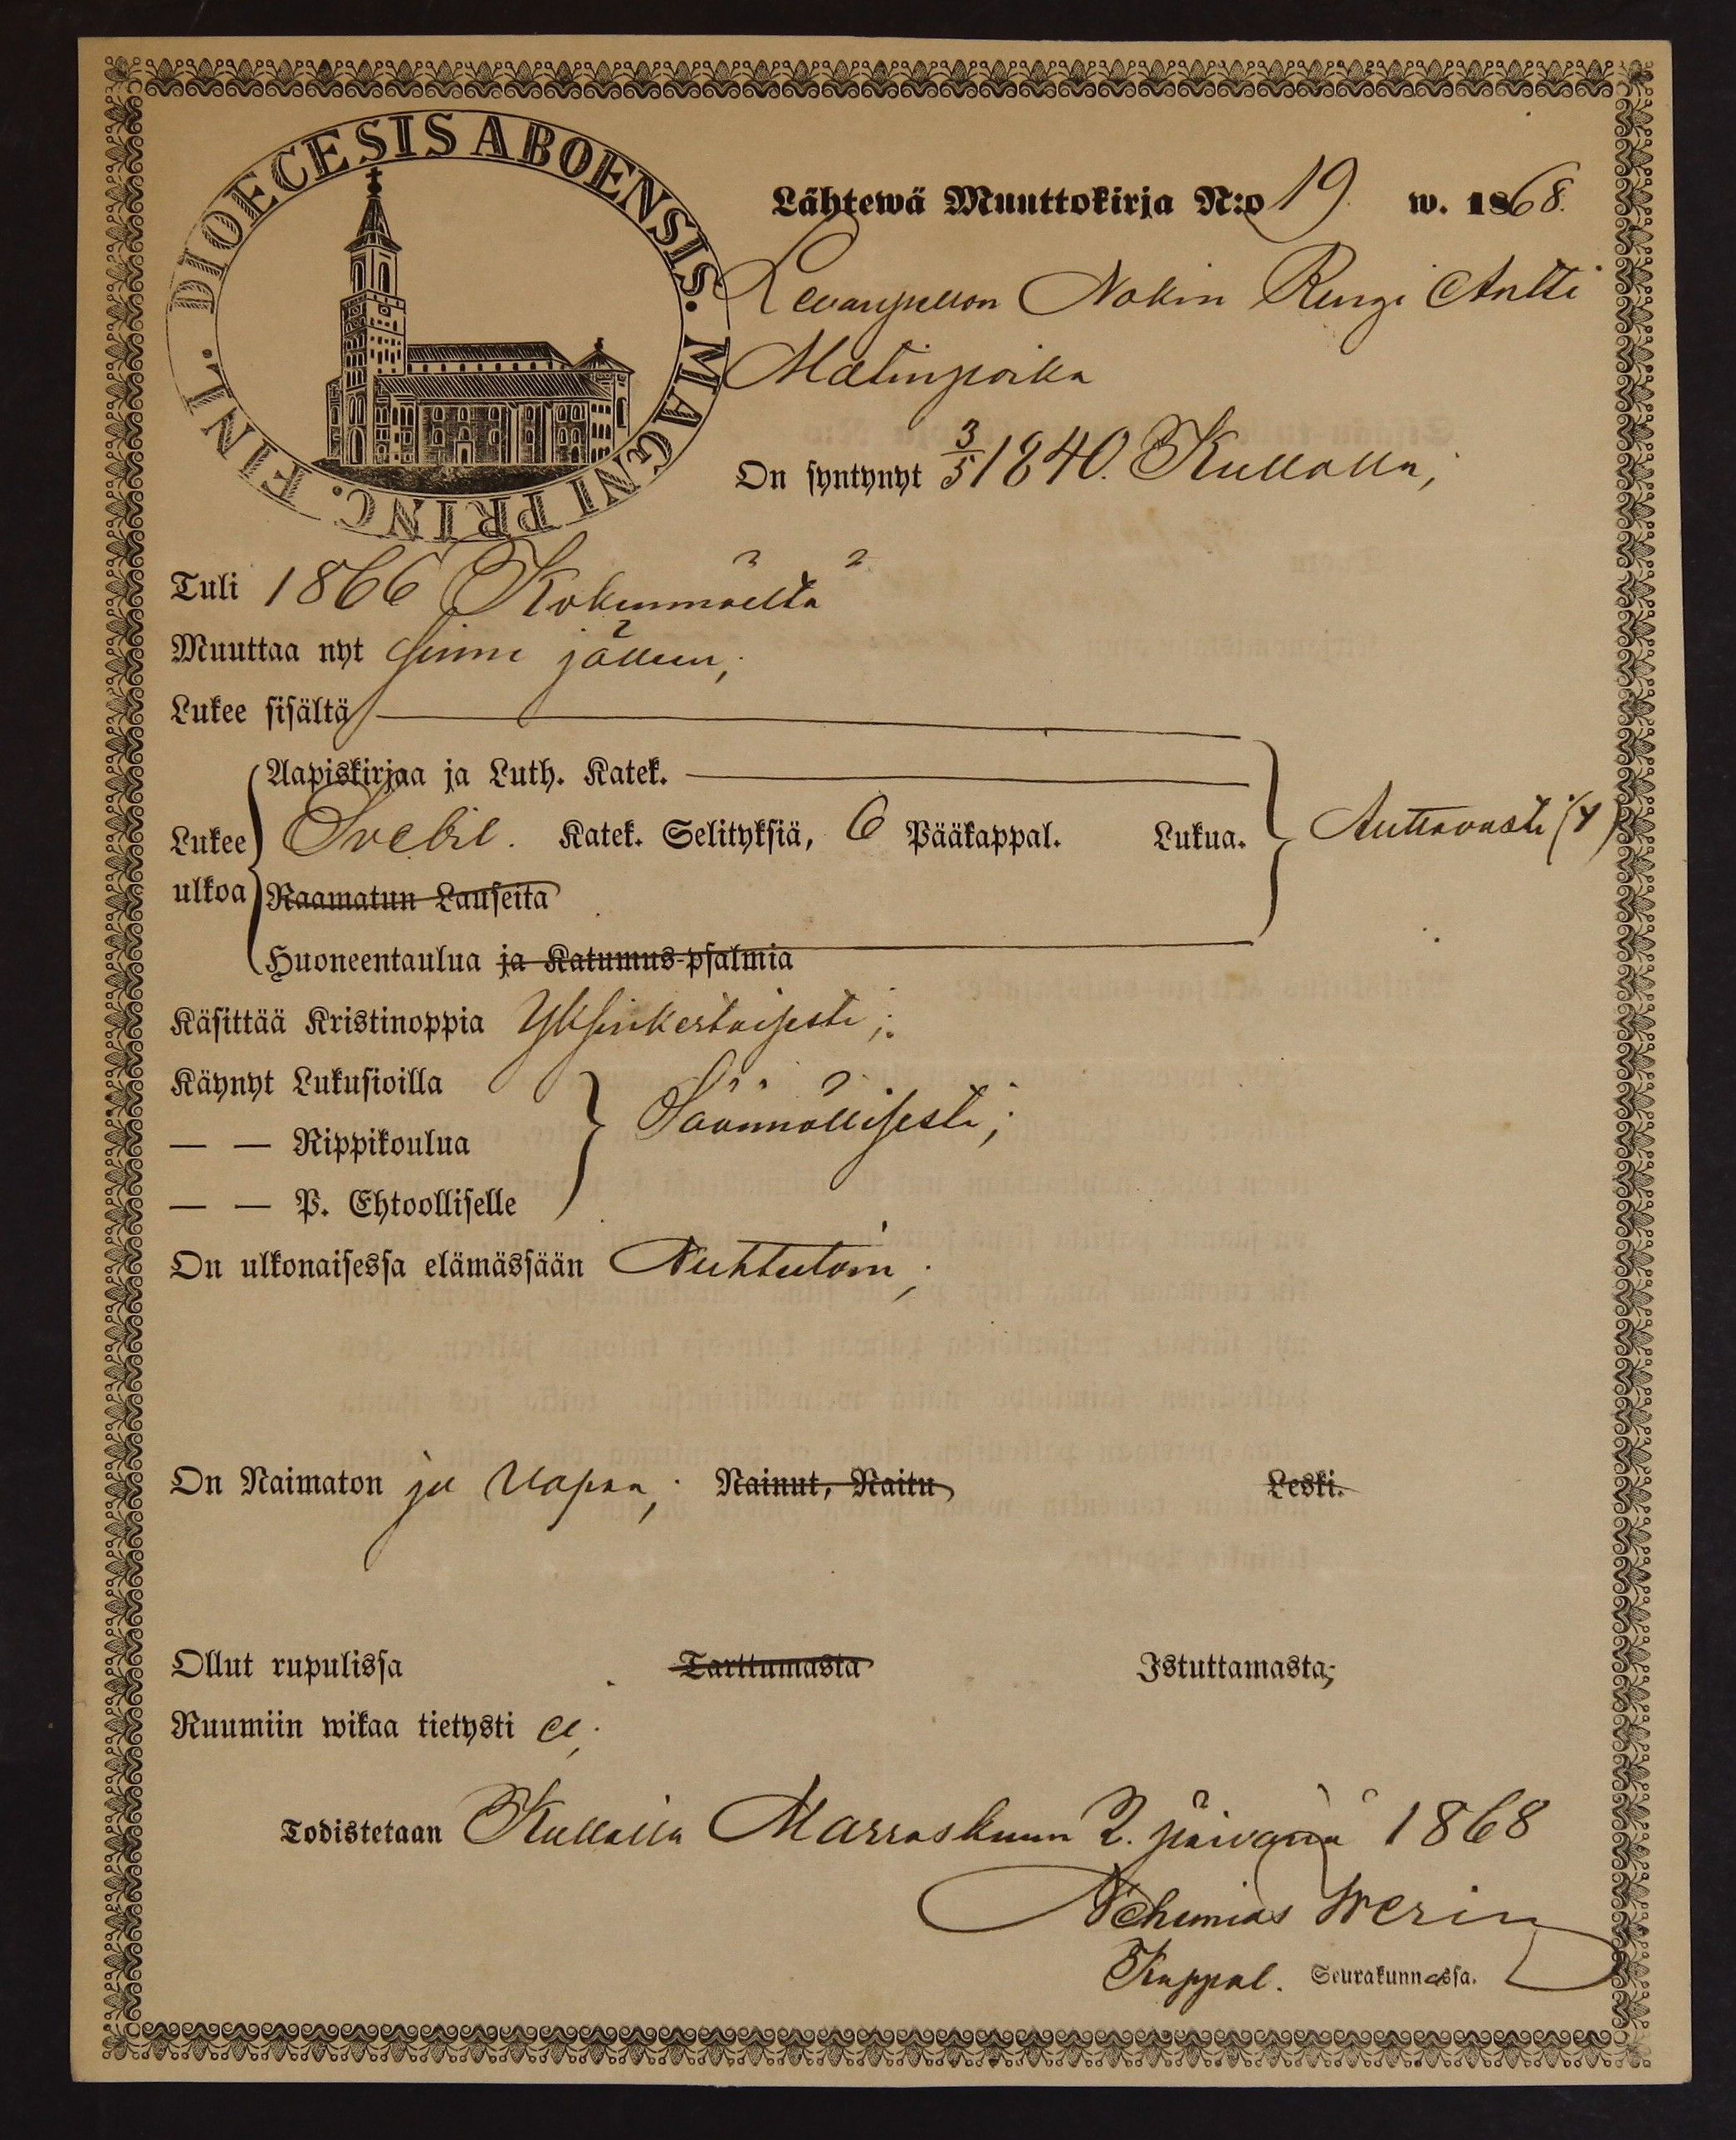 DIOECESIS ABOENSIS. MAGNI PRINC. FINL.
Lähtewä Muuttokirja N:o 19. w. 1868.
Levanpellon Nokin Rengi Antti
Matinpoika
On syntynyt 3/5 1840. Kullalla;
Tuli 1866 Kokemäeltä
Muuttaa nyt sinne jälleen;
Lukee sisältä
Aapiskirjaa ja Luth. Katek.
Lukee ulkoa Svebil. Katek. Selityksiä, 6 Pääkappal. Lukua. Auttavasti (4)
Raamatun Lauseita
Huoneentaulua ja Katumus-psalmia
Käsittää Kristinoppia Yksinkertaisesti;
Käynyt Lukusioilla
— — Rippikoulua Säännöllisesti;
— — P. Ehtoolliselle
On ulkonaisessa elämässään Nuhteetoin;
On Naimaton ja Vapaa; Nainut, Naitu Leski.
Ollut rupulissa Tarttumasta Istuttamasta;
Ruumiin wikaa tietysti ei;
Todistetaan Kullalla Marraskuun 2. päivänä 1868
Nehemias Werin
Kappal. Seurakunnassa.